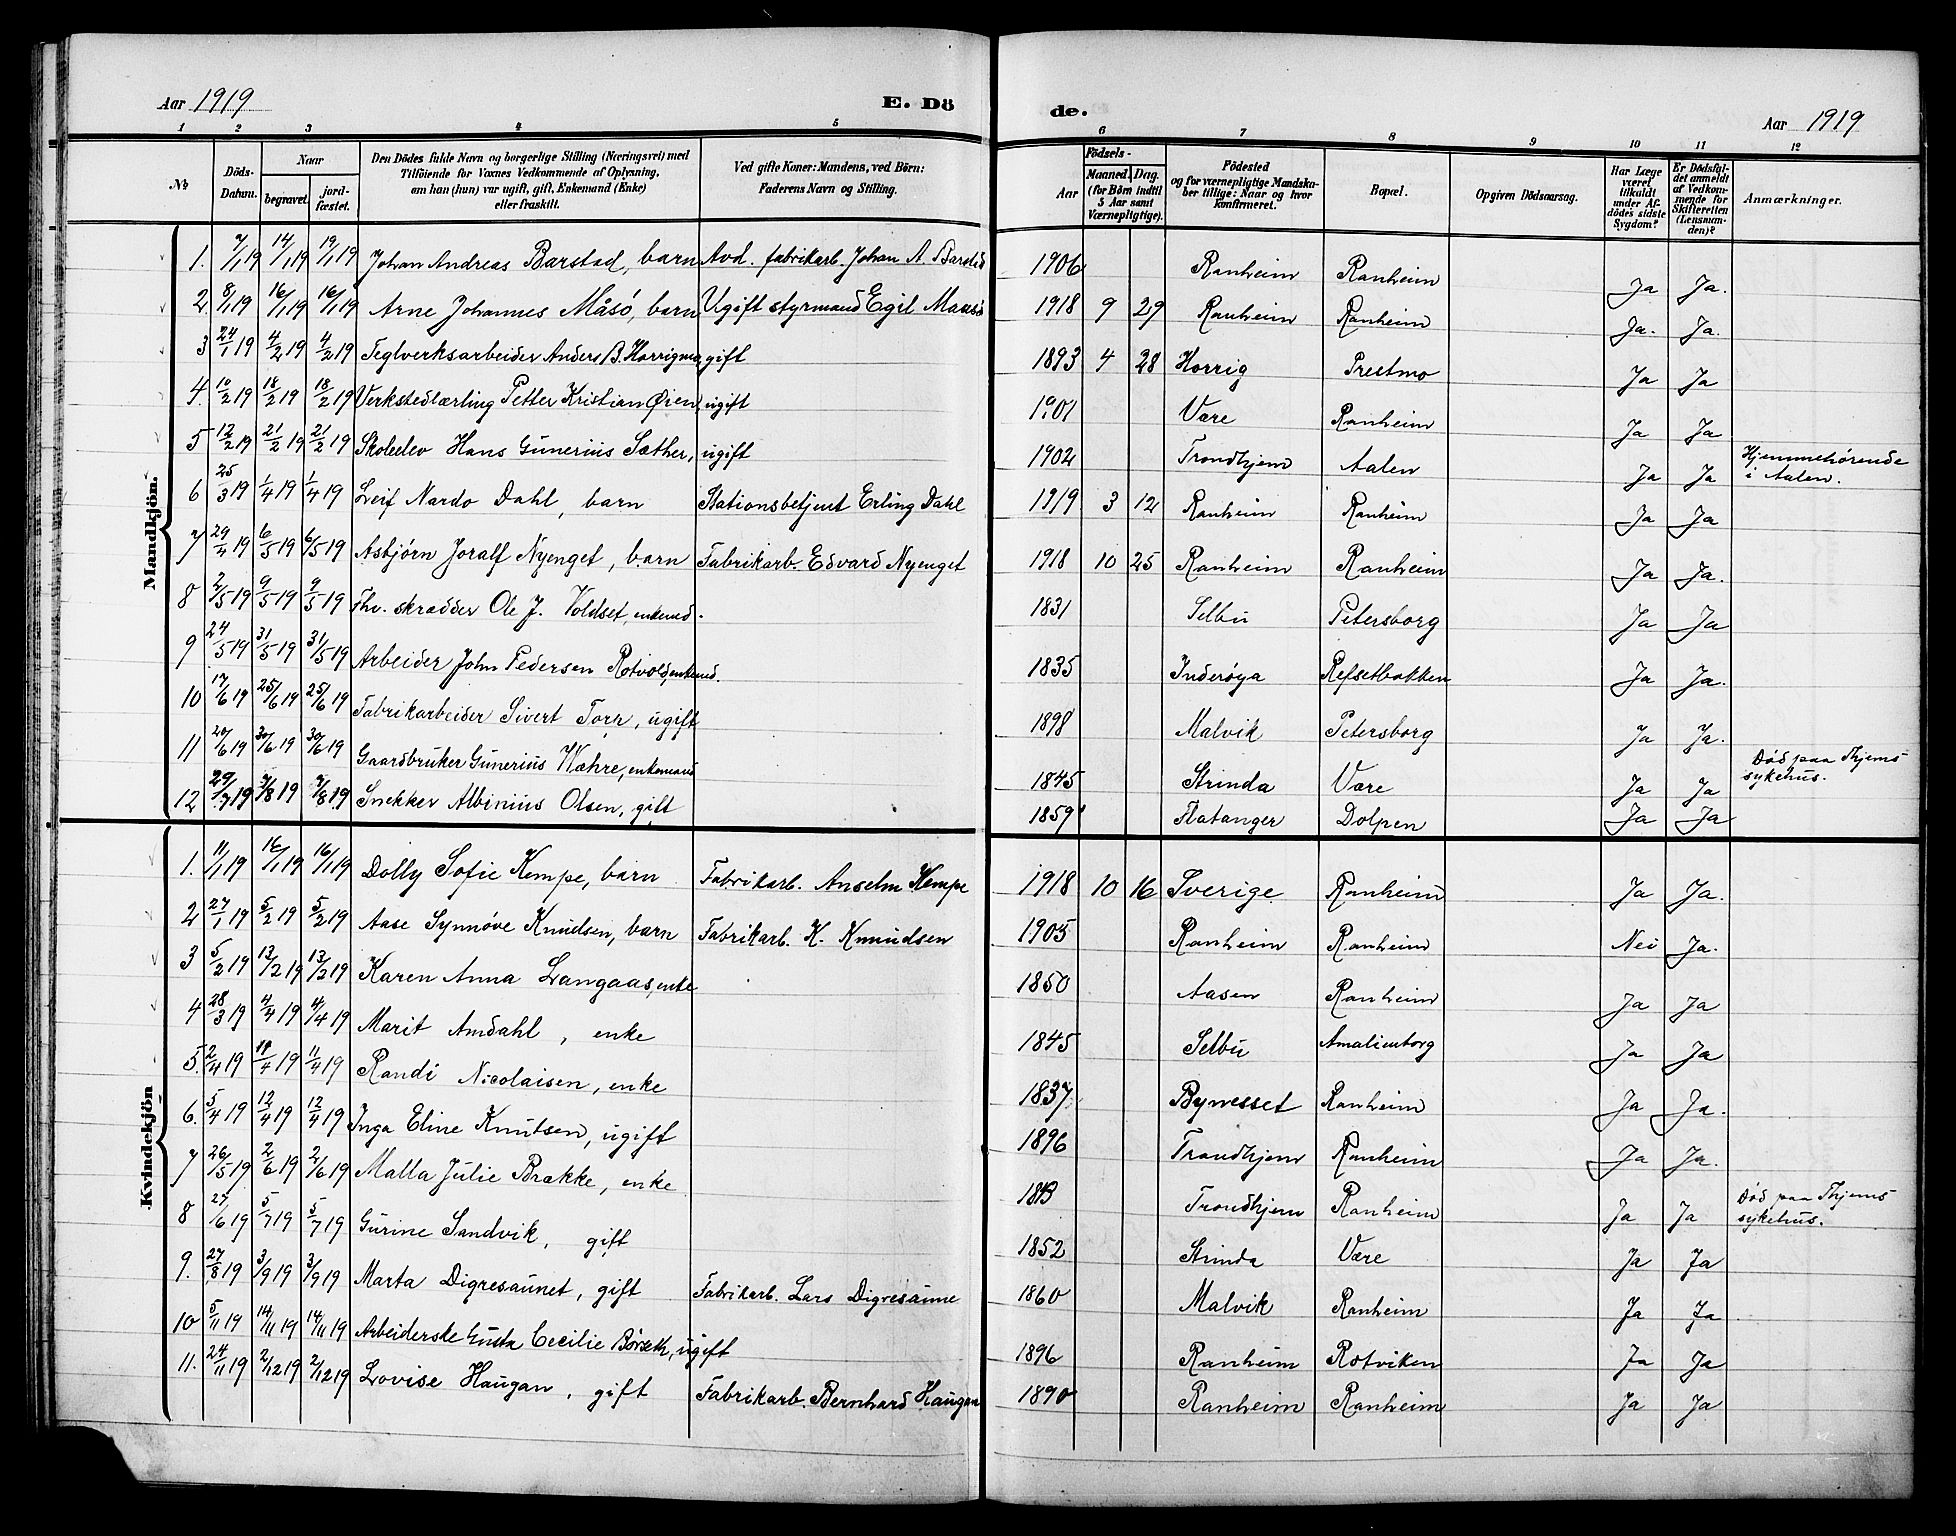 Aar 1919
E. Dö
de.
Aar 1919
1 2 3 4 5 6 7 8 9 10 11 12
No
Döds-Datum.
Naar
begravet.
jord-fæstet.
Den Dödes fulde Navn og borgerlige Stilling (Næringsvei) med
Tilföiende for Voxnes Vedkommende af Oplysning,
om han (hun) var ugift, gift, Enkemand (Enke)
eller fraskilt.
Ved gifte Koner: Mandens, ved Börn:
Faderens Navn og Stilling.
Födsels-
Aar
Maaned. Dag.
(for Börn indtil
5 Aar samt
Værnepligtige).
Födested
og for værnepligtige Mandska-
ber tillige: Naar og hvor
konfirmeret.
Bopæl.
Opgiven Dödsaarsag.
Har Læge
været
tilkaldt
under Af-
dödes sidste
Sygdom?
Er Dödsfal-
det anmeldt
af Vedkom-
mende for
Skifteretten
(Lensman-
den)?
Anmærkninger.
Mandkjön.
1. 7/1 19 14/1 19 19/1 19 Johan Andreas Barstad, barn Avd. fabrikarb. Johan A. Barstad 1906 Ranheim Ranheim Ja Ja.
2. 8/1 19 16/1 19 16/1 19 Arne Johannes Måsö, barn Ugift styrmand Egil Maasö 1918 9 29 Ranheim Ranheim Ja. Ja.
3 24/1 19 4/2 19 4/2 19 Teglverksarbeider Anders B. Horrigmo, gift 1893 4 28 Horrig Prestmo Ja Ja
4. 10/2 19 18/2 19 18/2 19 Verkstedlærling Petter Kristian Øien, ugift 1901 Være Ranheim Ja Ja
5 12/2 19 21/2 19 21/2 19 Skoleelev Hans Gunerius Sæther, ugift 1902 Trondhjem Aalen Ja Ja Hjemmehörende
i Aalen.
6 25/3 19 1/4 19 1/4 19 Leif Nardo Dahl, barn Stationsbetjent Erling Dahl 1919 3 12 Ranheim Ranheim Ja Ja
7 29/4 19 6/5 19 6/5 19 Asbjörn Joralf Nyenget, barn Fabrikarb. Edvard Nyenget 1918 10 25 Ranheim Ranheim Ja Ja.
8 2/5 19 9/5 19 9/5 19 Fhv. skrædder Ole J. Voldset, enkemd. 1831 Selbu Petersborg Ja Ja
9 24/5 19 31/5 19 31/5 19 Arbeider John Pedersen Rotvold, enkemd. 1835 Inderøya Refsetbakken Ja Ja.
10 17/6 19 25/6 19 25/6 19 Fabrikarbeider Sivert Torp, ugift 1898 Malvik Petersborg Ja Ja.
11 20/6 19 30/6 19 30/6 19 Gaardbruker Gunerius Wæhre, enkemand 1845 Strinda Være Ja Ja Död paa Thjems
sykehus.
12 29/7 19 7/8 19 7/8 19 Snekker Albinius Olsen, gift 1859 Flatanger Dolpen Ja Ja
Kvindekjön
1. 11/1 19 16/1 19 16/1 19 Dolly Sofie Kempe, barn Fabrikarb. Anselm Kempe 1918 10 16 Sverige Ranheim Ja Ja.
2 27/1 19 5/2 19 5/2 19 Aase Synnöve Knudsen, barn Fabrikarb. K. Knudsen 1905 Ranheim Ranheim Nei Ja.
3 5/2 19 13/2 19 13/2 19 Karen Anna Langaas, enke 1850 Aasen Ranheim Ja Ja
4 28/3 19 4/4 19 4/4 19 Marit Amdahl, enke 1845 Selbu Amalienborg Ja Ja
5. 2/4 19 11/4 19 11/4 19 Randi Nicolaisen, enke 1837 Bynesset Ranheim Ja Ja.
6. 5/4 19 12/4 19 12/4 19 Inga Eline Knutsen, ugift 1896 Trondhjem Ranheim Ja Ja.
7 26/5 19 2/6 19 2/6 19 Malla Julie Brække, enke Trondhjem Ranheim Ja Ja Död paa Thjems
sykehus.
8 27/6 19 5/7 19 5/7 19 Gurine Sandvik, gift 1852 Strinda Være Ja Ja
9. 27/8 19 3/9 19 3/9 19 Marta Digresaunet, gift Fabrikarb. Lars Digresaune 1860 Malvik Ranheim Ja Ja
10 5/11 19 14/11 19 14/11 19 Arbeiderske Gusta Cecilie Börseth, ugift 1896 Ranheim Rotviken Ja Ja
11. 24/11 19 2/12 19 2/12 19 Lovise Haugan, gift Fabrikarb. Bernhard Haugan 1890 Ranheim Ranheim Ja Ja